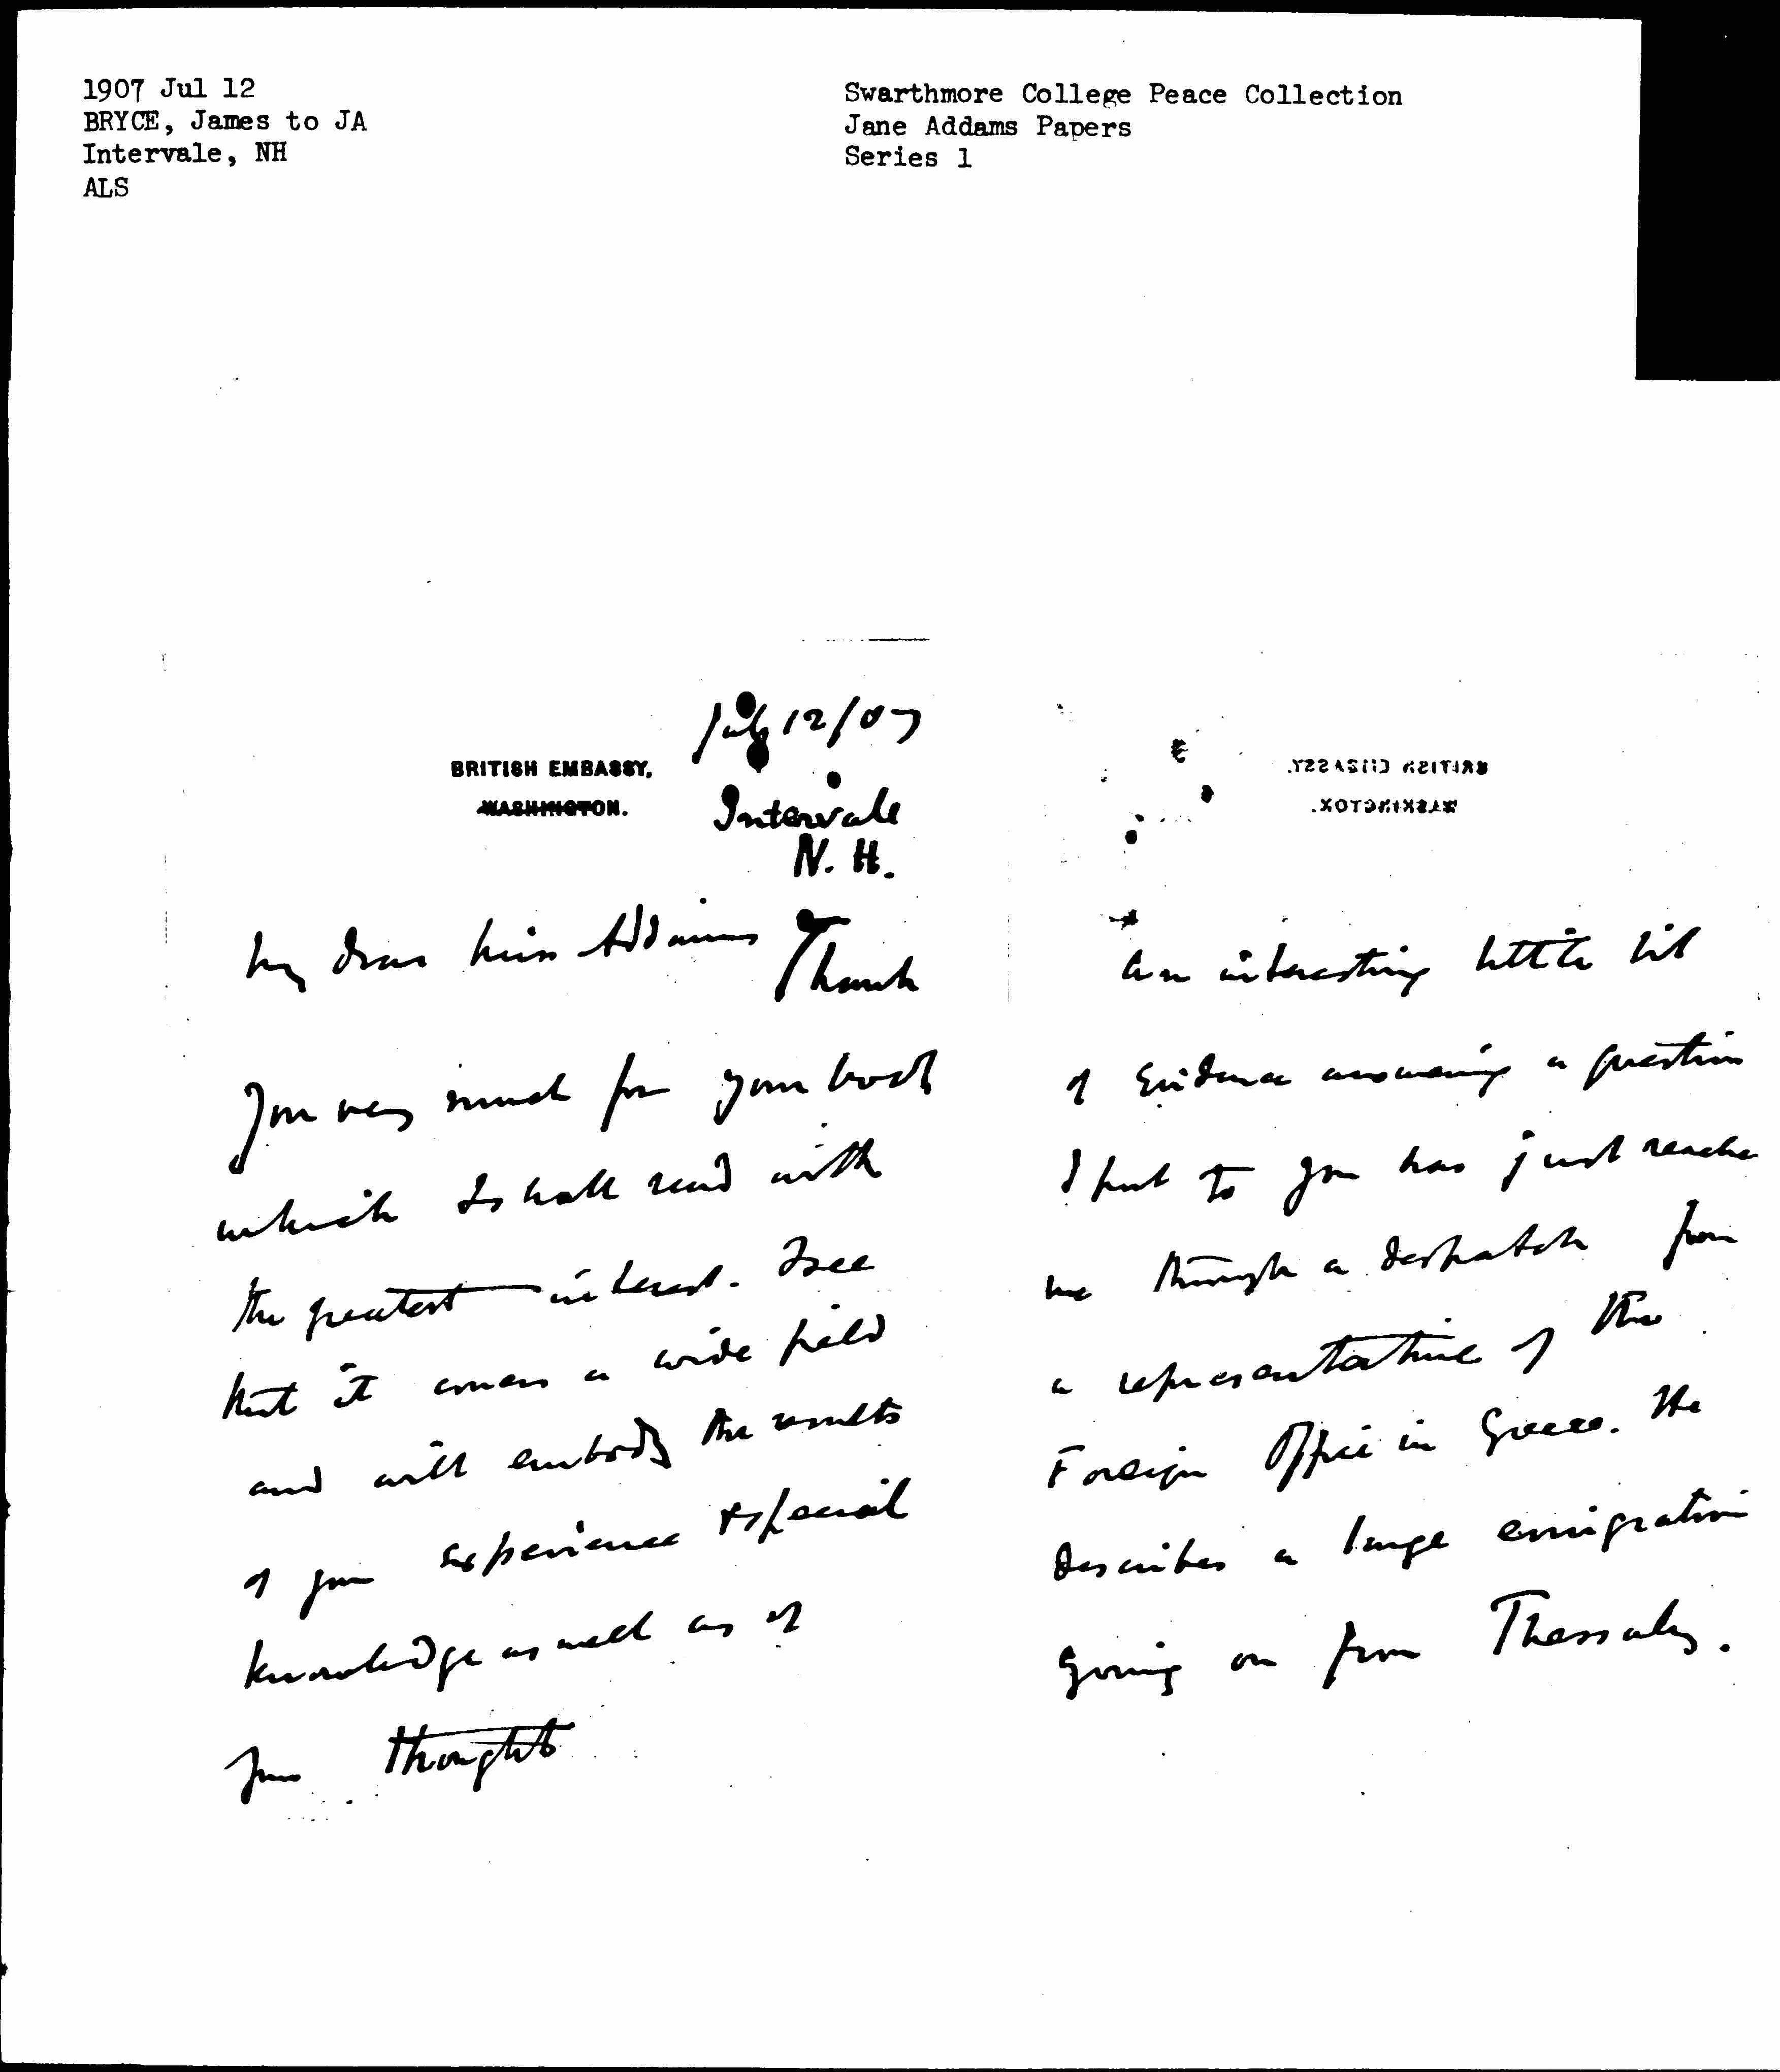 1907 Jul 12
BRYCE, James to JA
Intervale, NH
ALS
Swarthmore College Peace Collection
Jane Addams Papers
Series 1
July 12/07
BRITISH EMBASSY,
WASHINGTON.
Intervale
N. H.
My dear Miss Addams
Thank
you very much for your book
which I shall read with
the greatest interest. I see
that it covers a wide field
and will embody the results
of your experience & special
knowledge as well as of
your thought
An interesting little bit
of evidence answering a question
I put to you has just reache
me through a despatch from
a representative of the
Foreign Office in Greece. He
describes a large emigration
going on from Thessaly.
BRITISH EMBASSY,
WASHINGTON.